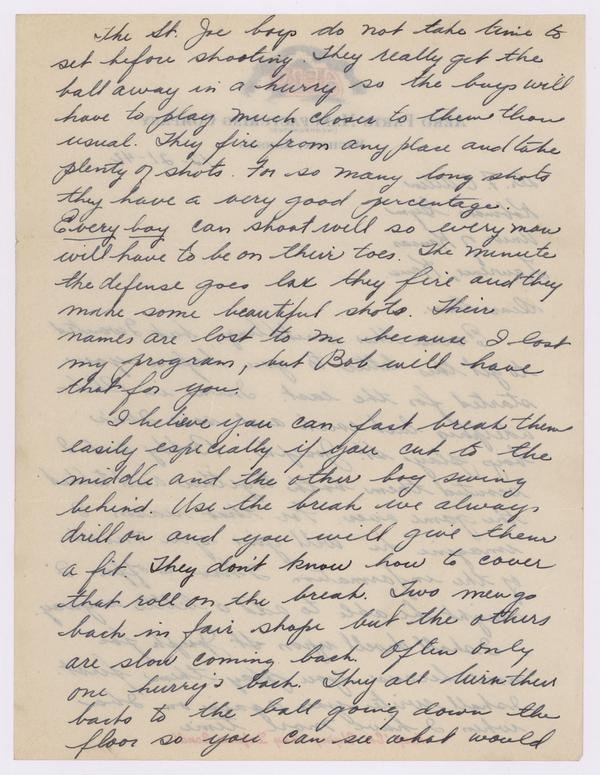 The St. Joe boys do not take time to
set before shooting. They really get the
ball away in a hurry so the boys will
have to play much closer to them than
usual. They fire from any place and take
plenty of shots. For so many long shots
they have a very good percentage.
Every boy can shoot well so every man
will have to be on their toes. The minute
the defense goes lax they fire and they
make some beautiful shots. Their
names are lost to me because I lost
my program, but Bob will have
that for you.
I believe you can fast break them
easily especially if you cut to the
middle and the other boy swing
behind. Use the break we always
drill on and you will give them
a fit. They don't know how to cover
that roll on the break. Two men go
back in fair shape but the others
are slow coming back. Often only
one hurrys back. They all turn their
backs to the ball going down the
floor so you can see what would